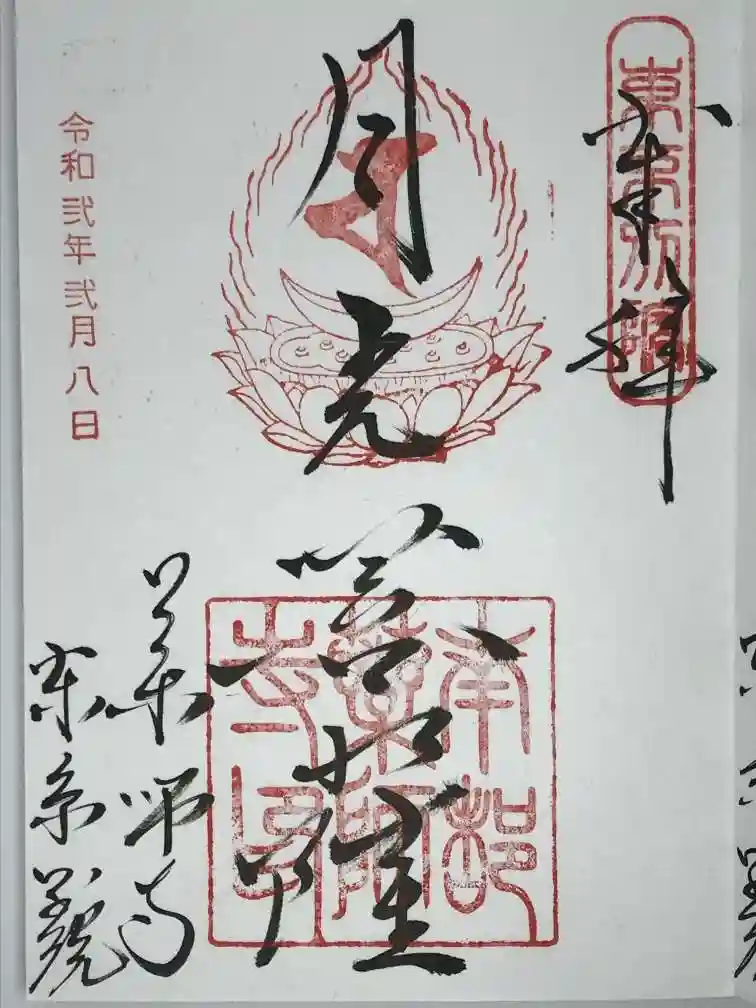 奉拝
東京別院
月光菩薩
南都
薬師
寺印
薬師寺
東京別院
令和弐年弐月八日